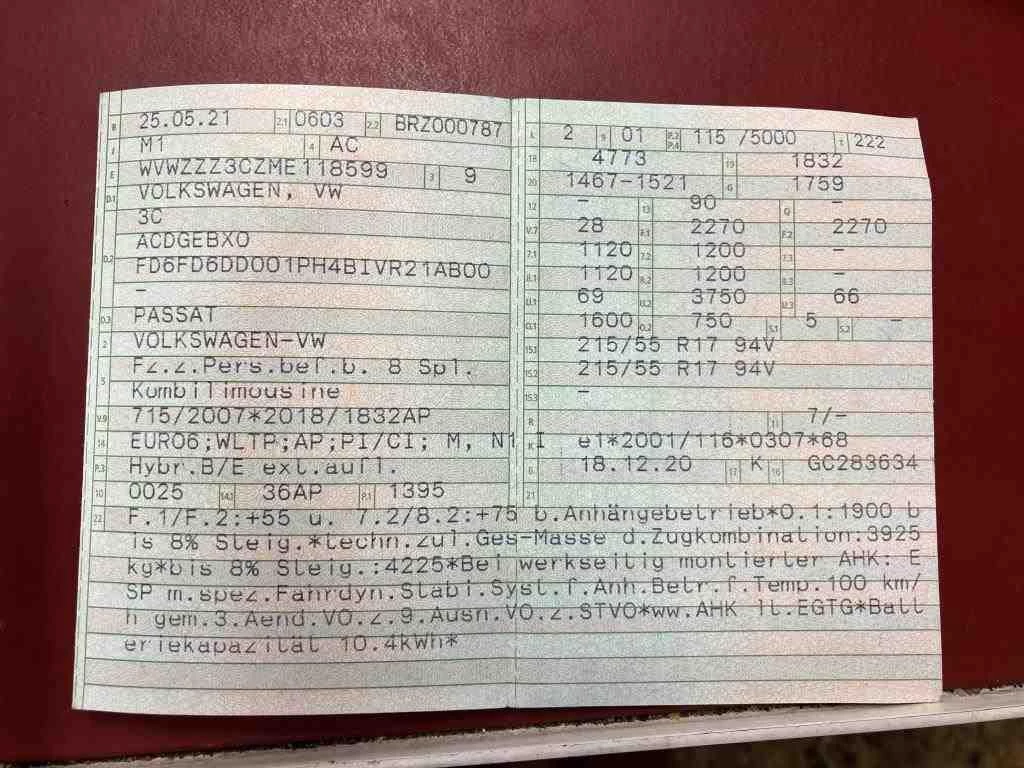 B 25.05.21 2.1 0603 2.2 BRZ000787
J M1 4 AC
E WVWZZZ3CZME118599 3 9
D.1 VOLKSWAGEN, VW
3C
D.2 ACDGEBX0
FD6FD6DD001PH4BIVR21AB00
-
D.3 PASSAT
2 VOLKSWAGEN-VW
5 Fz.z.Pers.bef.b. 8 Spl.
Kombilimousine
V.9 715/2007*2018/1832AP
14 EURO6;WLTP;AP;PI/CI; M, N1 I
P.3 Hybr.B/E ext.aufl.
10 0025 14.1 36AP P.1 1395
L 2 9 01 P.2 P.4 115 /5000 T 222
18 4773 19 1832
20 1467-1521 G 1759
12 - 13 90 Q -
V.7 28 F.1 2270 F.2 2270
7.1 1120 7.2 1200 7.3 -
8.1 1120 8.2 1200 8.3 -
U.1 69 U.2 3750 U.3 66
O.1 1600 O.2 750 S.1 5 S.2 -
15.1 215/55 R17 94V
15.2 215/55 R17 94V
15.3 -
R 11 7/-
K e1*2001/116*0307*68
6 18.12.20 17 K 16 GC283634
21
22 F.1/F.2:+55 u. 7.2/8.2:+75 b.Anhängebetrieb*O.1:1900 b
is 8% Steig.*techn.zul.Ges-Masse d.Zugkombination:3925
kg*bis 8% Steig.:4225*Bei werkseitig montierter AHK: E
SP m.spez.Fahrdyn.Stabi.Syst.f.Anh.Betr.f.Temp.100 km/
h gem.3.Aend.VO.z.9.Ausn.VO.z.STVO*ww.AHK lt.EGTG*Batt
eriekapazität 10.4kWh*